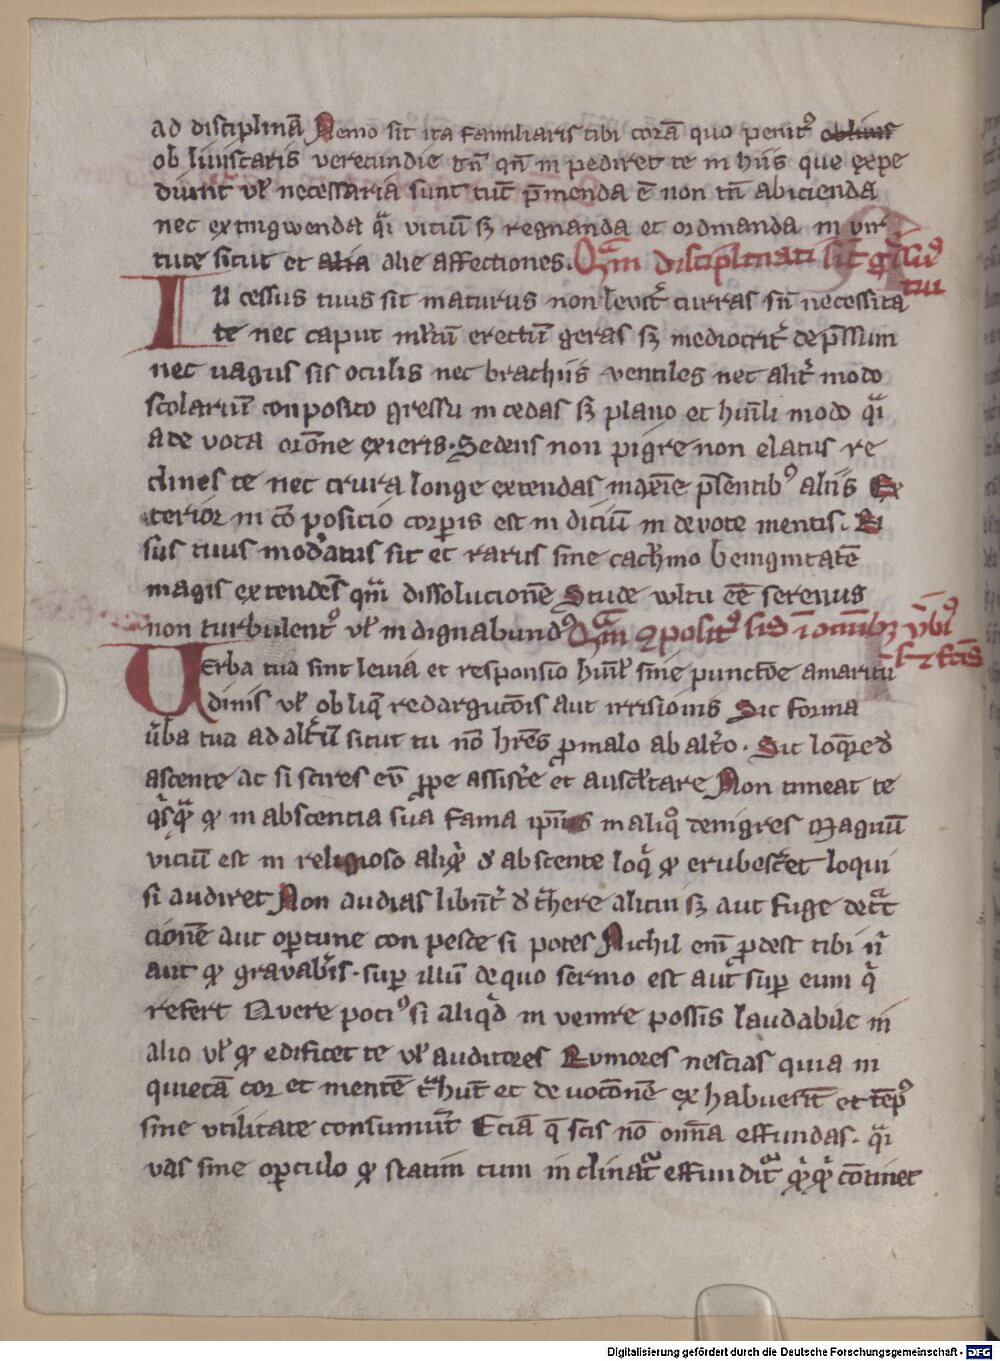 ad disciplinā Nemo sit ita familiaris tibi corā quo penitꝰ obliuis
ob liuiscaris verecundie tn̄ qn̄ in pediret te in hiis que expe
diunt vl̓ necessaria sunt tūc p̄menda ē non tn̄ abicienda
nec extingwenda qͣi viciū sꝫ regnanda et ordinanda in vir
tute sicut et alia alie affectiones. Qͣm disciplinati sit gͤssꝰ
tui
IN cessus tuus sit maturus non levit̓ curras sn̄ necessita
te nec caput erectū geras sꝫ mediocrit̓ dep̄ssum
nec uagus sis oculis nec brachiis ventiles nec alit̓ modo
scolariū conposito gressu incedas sꝫ plano et hūili modo qͣi
a de vota orōne exieris. Sedens non pigre non elatus re
clines te nec crura longe extendas maxīe p̄sentibꝰ aliis Ex
terior in cō positio corꝑis est in diciū in devote mentis. Ri
sus tuus modatus sit et rarus sine cachīno benignitatē
magis extendēs qͣm dissolucionē Stude wltu eē serenus
non turbulentꝰ vl̓ in dignabundꝰ Qͣm ꝯpositꝰ sis ī omībꝫ v̄bis
et fc̄is
Verba tua sint levia et responsio hūil̓ sine punctōe amaritu
dinis vl̓ obliq̄ redargucōis aut irrisionis Sic forma
v̓ba tua ad alt̓ū sicut tu nō hr̄es ꝓ malo ab alt̓o. Sic loq̄re d̓
ascente ac si scires eū ꝓpe assist̓e et auscl̓tare Non timeat te
qͥsqͣ ꝙ in abscencia sua fama ipīus in aliqͦ denigres Magnū
viciū est in religioso aliqͥ d̓ abscente loqͥ ꝙ erubesc̓et loqui
si audiret Non audias libēt̓ d̓ tͣhere alicui sꝫ aut fuge detͣc
cionē aut oꝑtune con pesce si potes Nichil em̄ ꝓdest tibi nͥ
aut ꝙ gravab̓is. suꝑ illū de quo sermo est aut suꝑ eum qͥ
refert Qvere pociꝰ si aliqͥd in venire possis laudabile in
alio vl̓ ꝙ edificet te vl̓ auditores Rumores nescias quia in
quietā cor et mentē tͣhūt et de uocōnē ex habuerīt et tēpꝰ
sine vtilitate consumūt Eciā q̄ scis nō om̄a effundas. qͣi
vas sine oꝑculo ꝙ statim cum in clinatͣ effunditͣ qͥcqͥd cōtinet